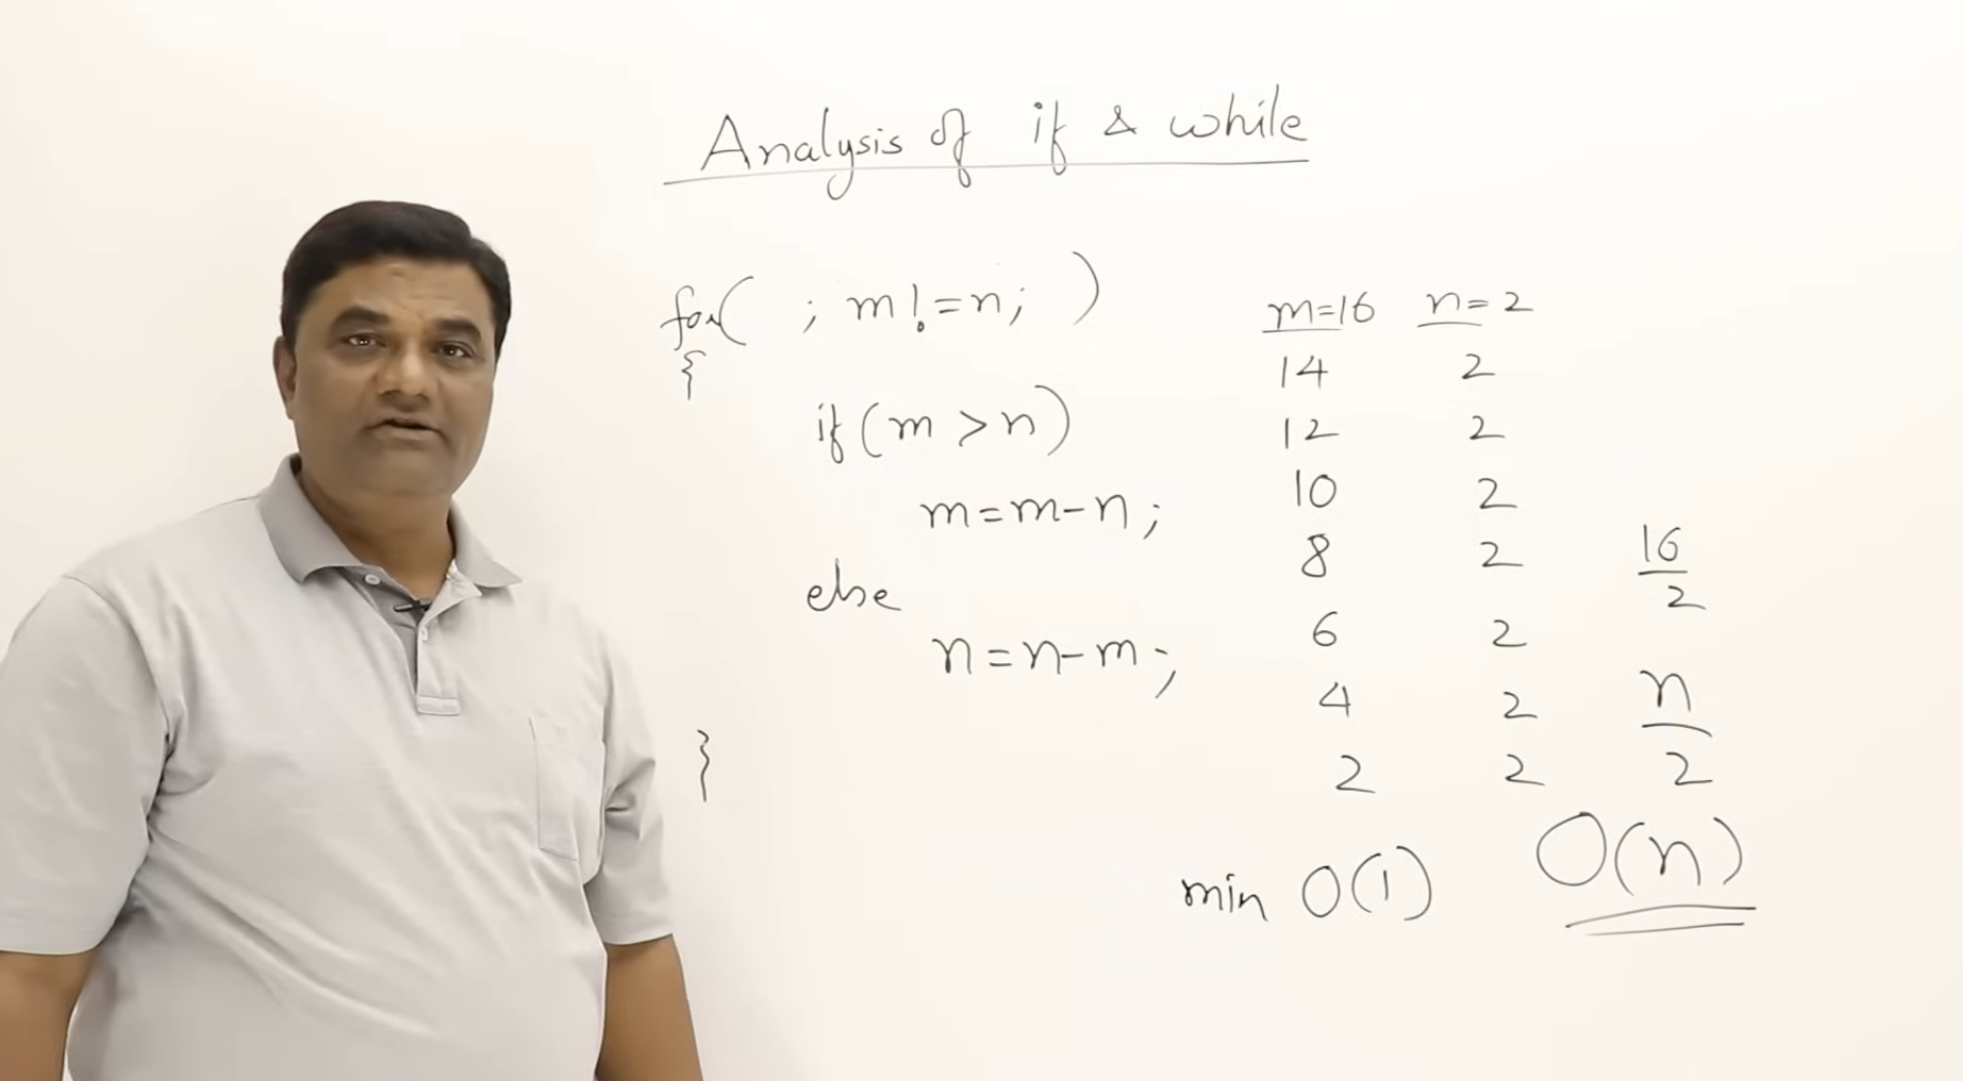 Analysis of if & while
for( ; m!=n; )
{
if(m > n)
m=m-n;
else
n=n-m;
}
m=16 n=2
14 2
12 2
10 2
8 2
6 2
4 2
2 2
16
2
n
2
min O(1) O(n)